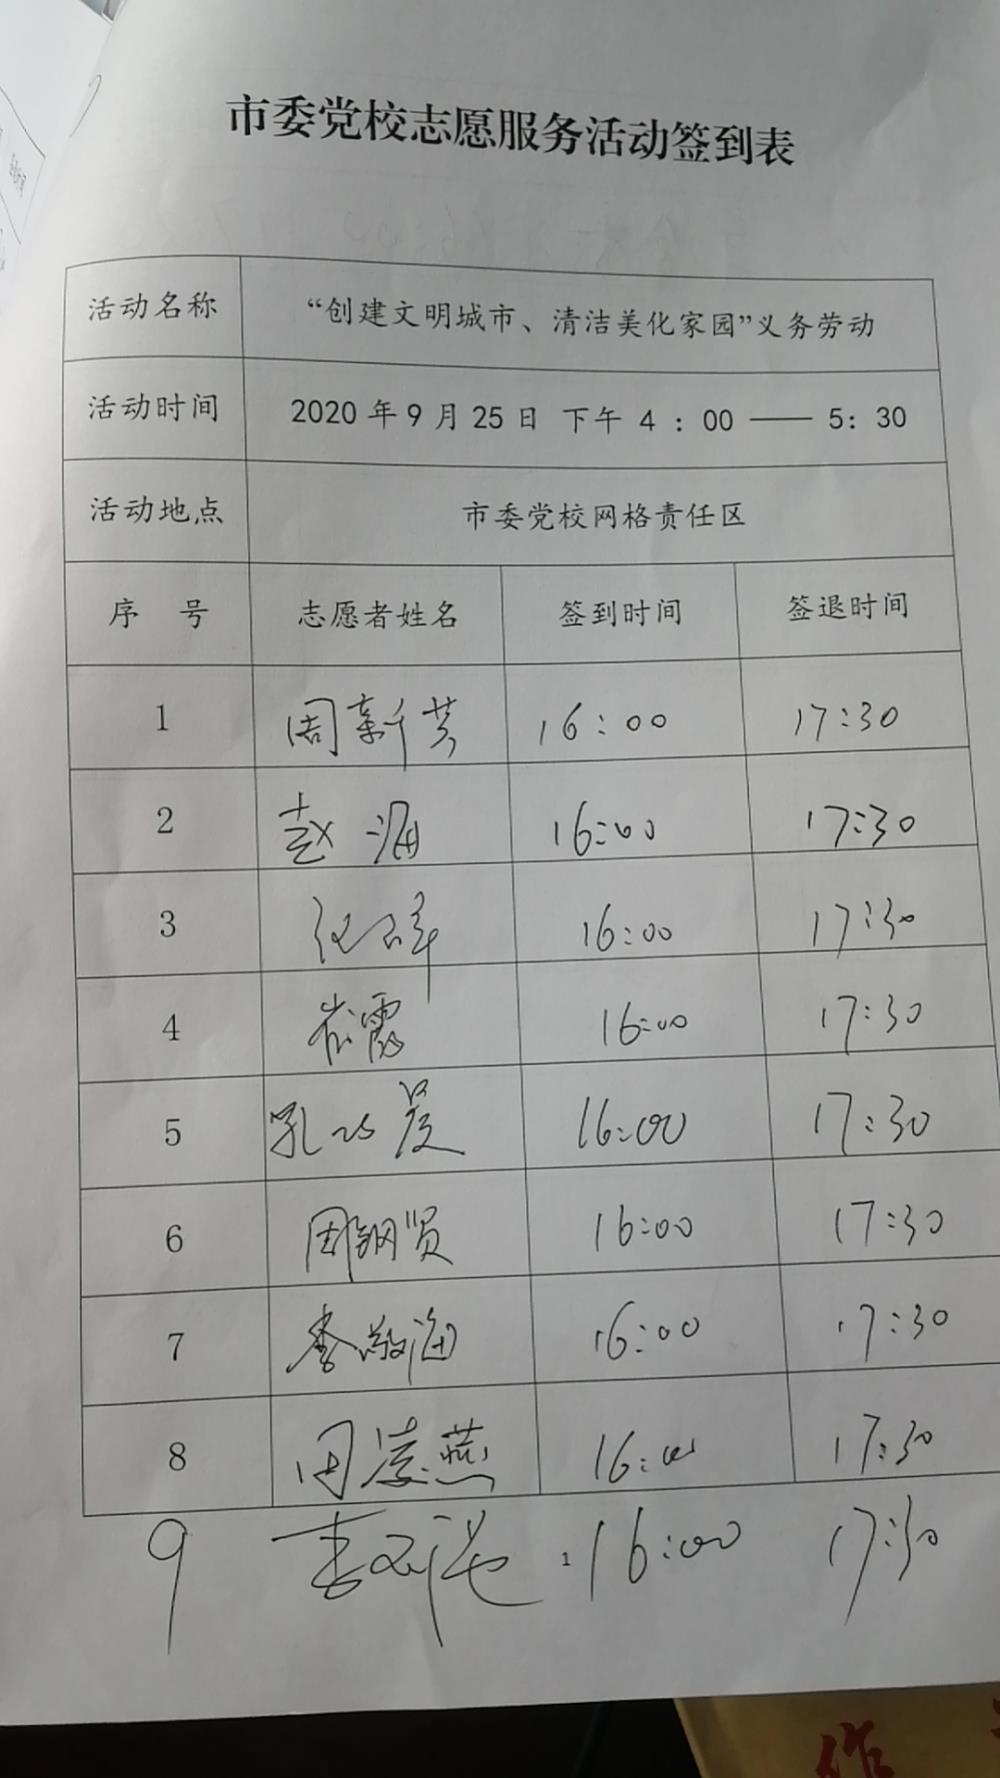 市委党校志愿服务活动签到表
活动名称 “创建文明城市、清洁美化家园”义务劳动
活动时间 2020年9月25日 下午 4 : 00 —— 5: 30
活动地点 市委党校网格责任区
序 号 志愿者姓名 签到时间 签退时间
1 周新芳 16:00 17:30
2 赵海 16:00 17:30
3 16:00 17:30
4 崔霞 16:00 17:30
5 孔 16:00 17:30
6 周钢贤 16:00 17:30
7 李敬海 16:00 17:30
8 田凌燕 16:00 17:30
9 李 16:00 17:30
1
作